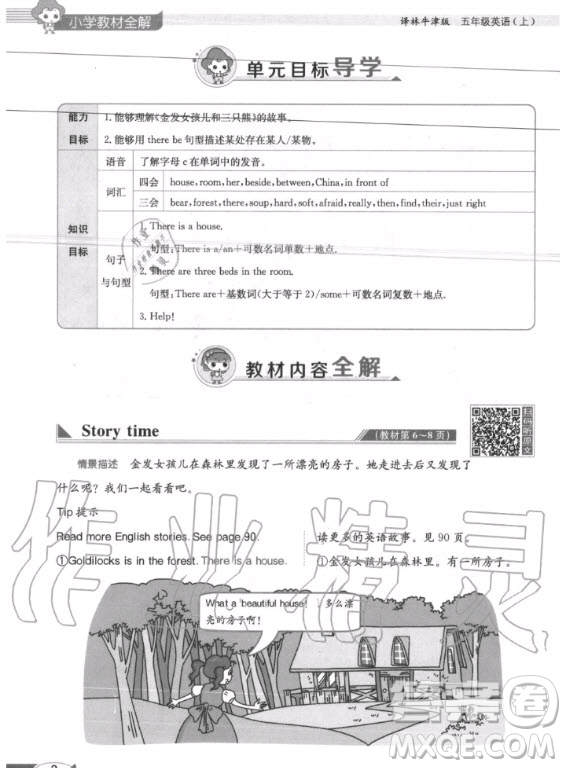 小学教材全解
译林牛津版 五年级英语(上)
单元目标导学
能力目标
1.能够理解《金发女孩儿和三只熊》的故事。
2.能够用there be句型描述某处存在某人/某物。
知识目标
语音 了解字母c在单词中的发音。
词汇
四会 house,room,her,beside,between,China,in front of
三会 bear,forest,there,soup,hard,soft,afraid,really,then,find,their,just right
句子与句型
1. There is a house.
句型:There is a/an+可数名词单数+地点.
2. There are three beds in the room.
句型:There are+基数词(大于等于2)/some+可数名词复数+地点.
3. Help!
教材内容全解
Story time
(教材第6~8页)
扫码听原文
情景描述 金发女孩儿在森林里发现了一所漂亮的房子。她走进去后又发现了
什么呢?我们一起看看吧。
Tip 提示
Read more English stories. See page 90. 读更多的英语故事。见90页。
①Goldilocks is in the forest. There is a house. ①金发女孩儿在森林里。有一所房子。
What a beautiful house! 多么漂
亮的房子啊!
2
作业精灵
答案卷
MXQE.COM